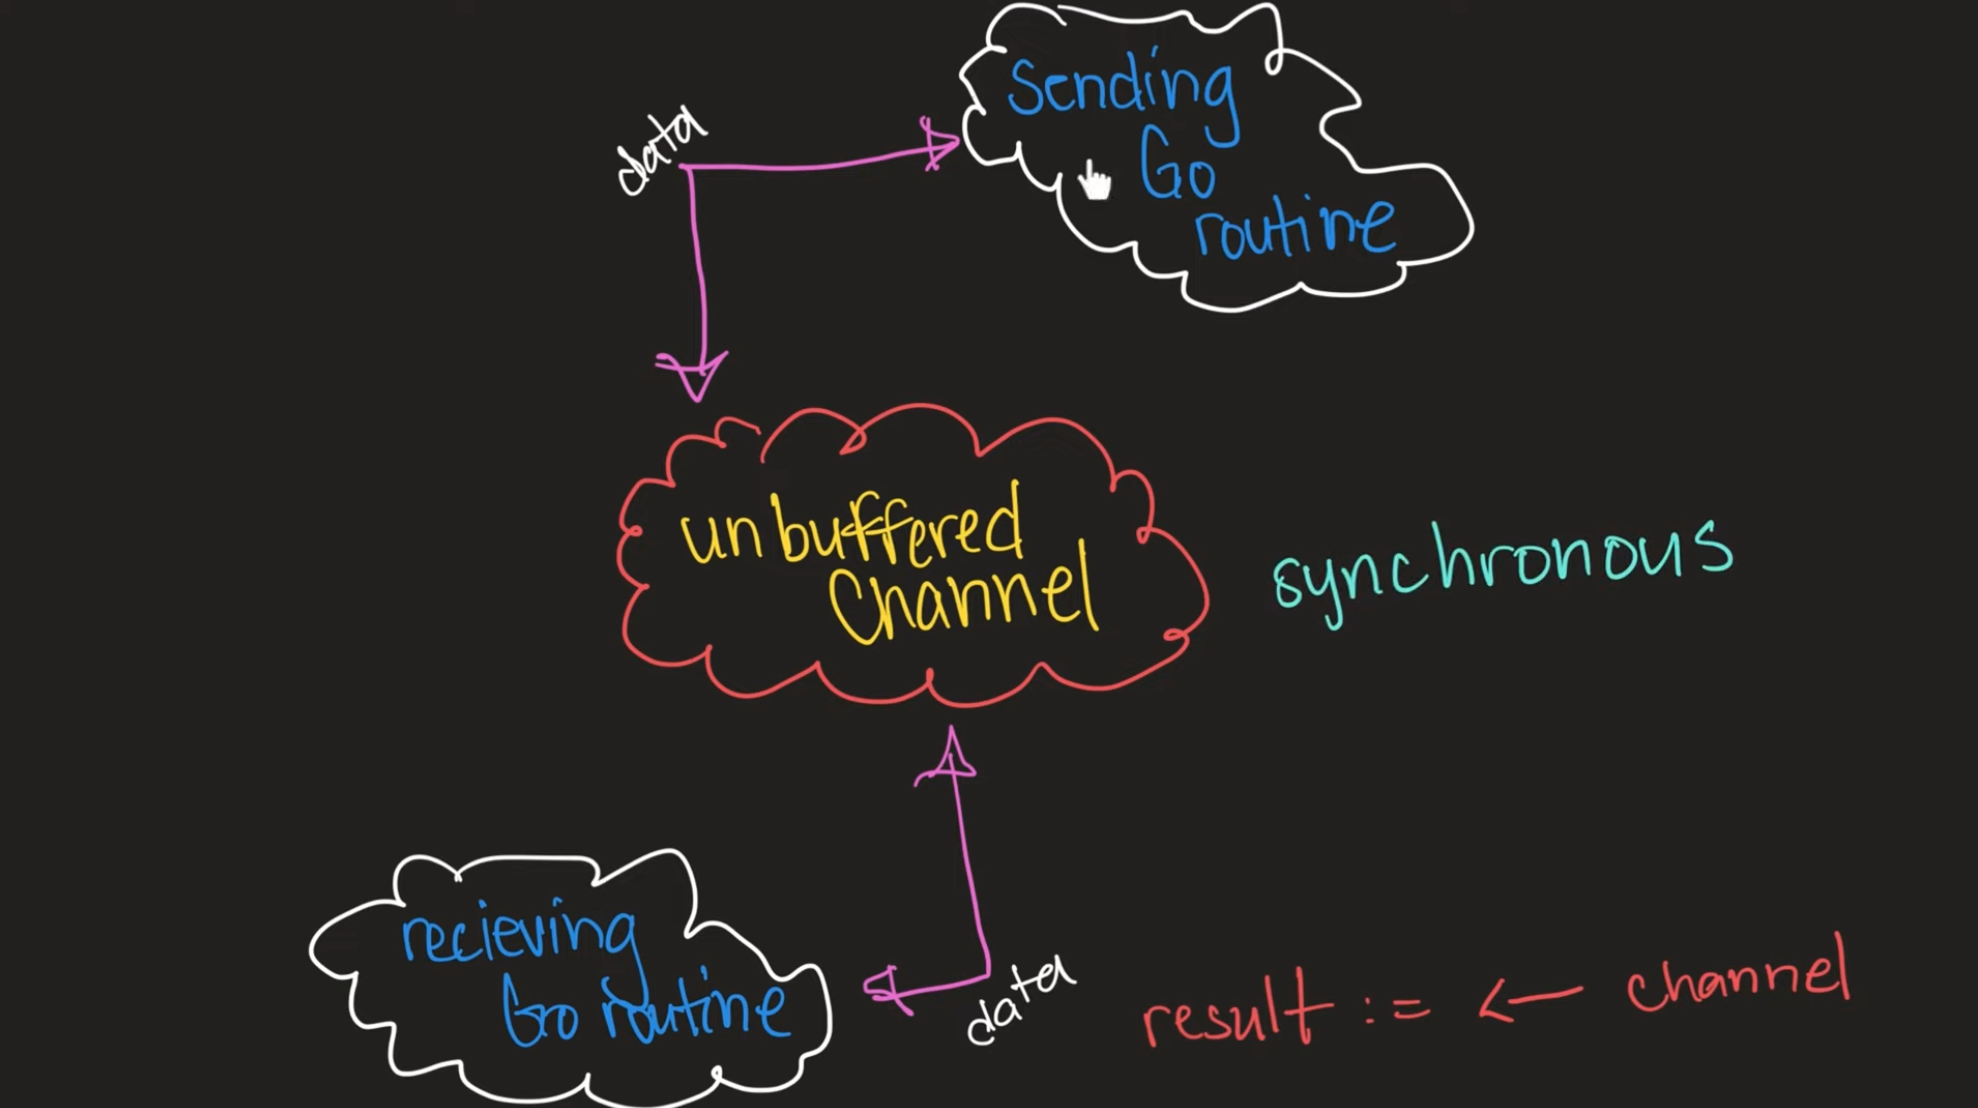 data
Sending
Go
routine
unbuffered
Channel
synchronous
recieving
Go routine
data
result := <- channel